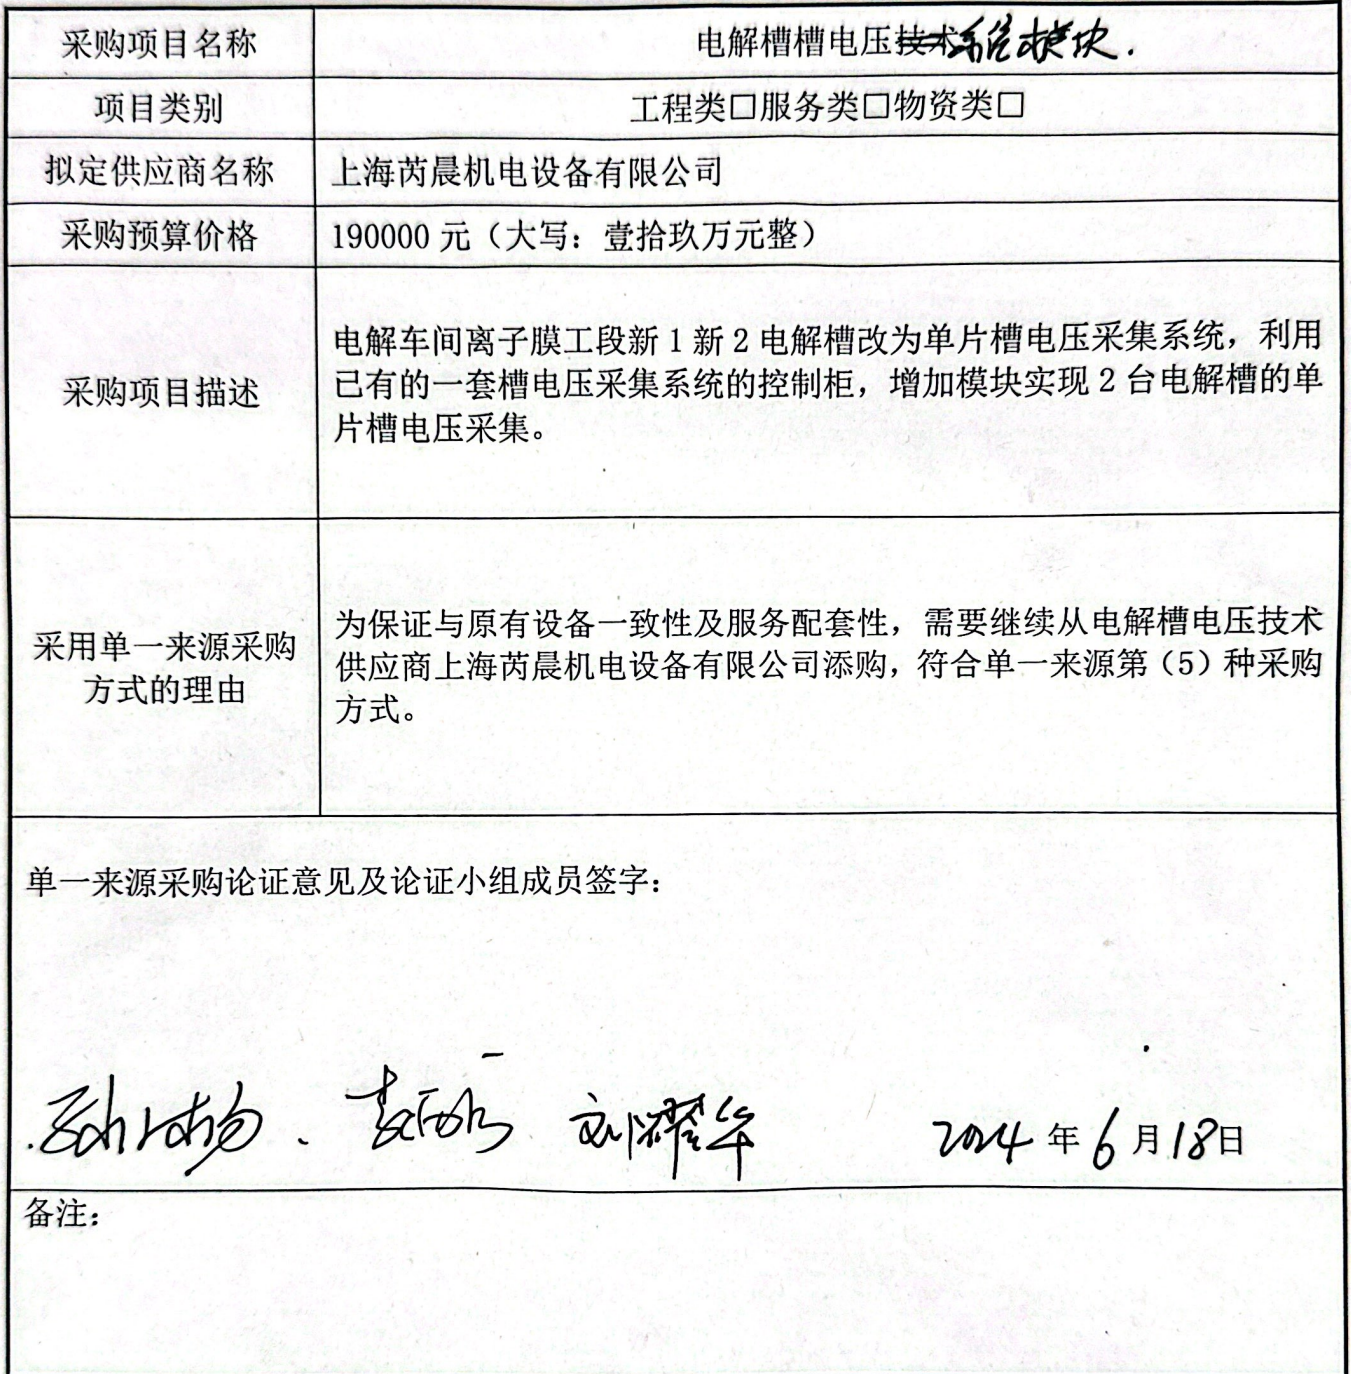 采购项目名称 电解槽槽电压技术系统模块.
项目类别 工程类□服务类□物资类□
拟定供应商名称 上海芮晨机电设备有限公司
采购预算价格 190000 元（大写：壹拾玖万元整）
采购项目描述
电解车间离子膜工段新 1 新 2 电解槽改为单片槽电压采集系统，利用
已有的一套槽电压采集系统的控制柜，增加模块实现 2 台电解槽的单
片槽电压采集。
采用单一来源采购
方式的理由
为保证与原有设备一致性及服务配套性，需要继续从电解槽电压技术
供应商上海芮晨机电设备有限公司添购，符合单一来源第（5）种采购
方式。
单一来源采购论证意见及论证小组成员签字：
刘耀华 2024 年 6 月 18 日
备注：